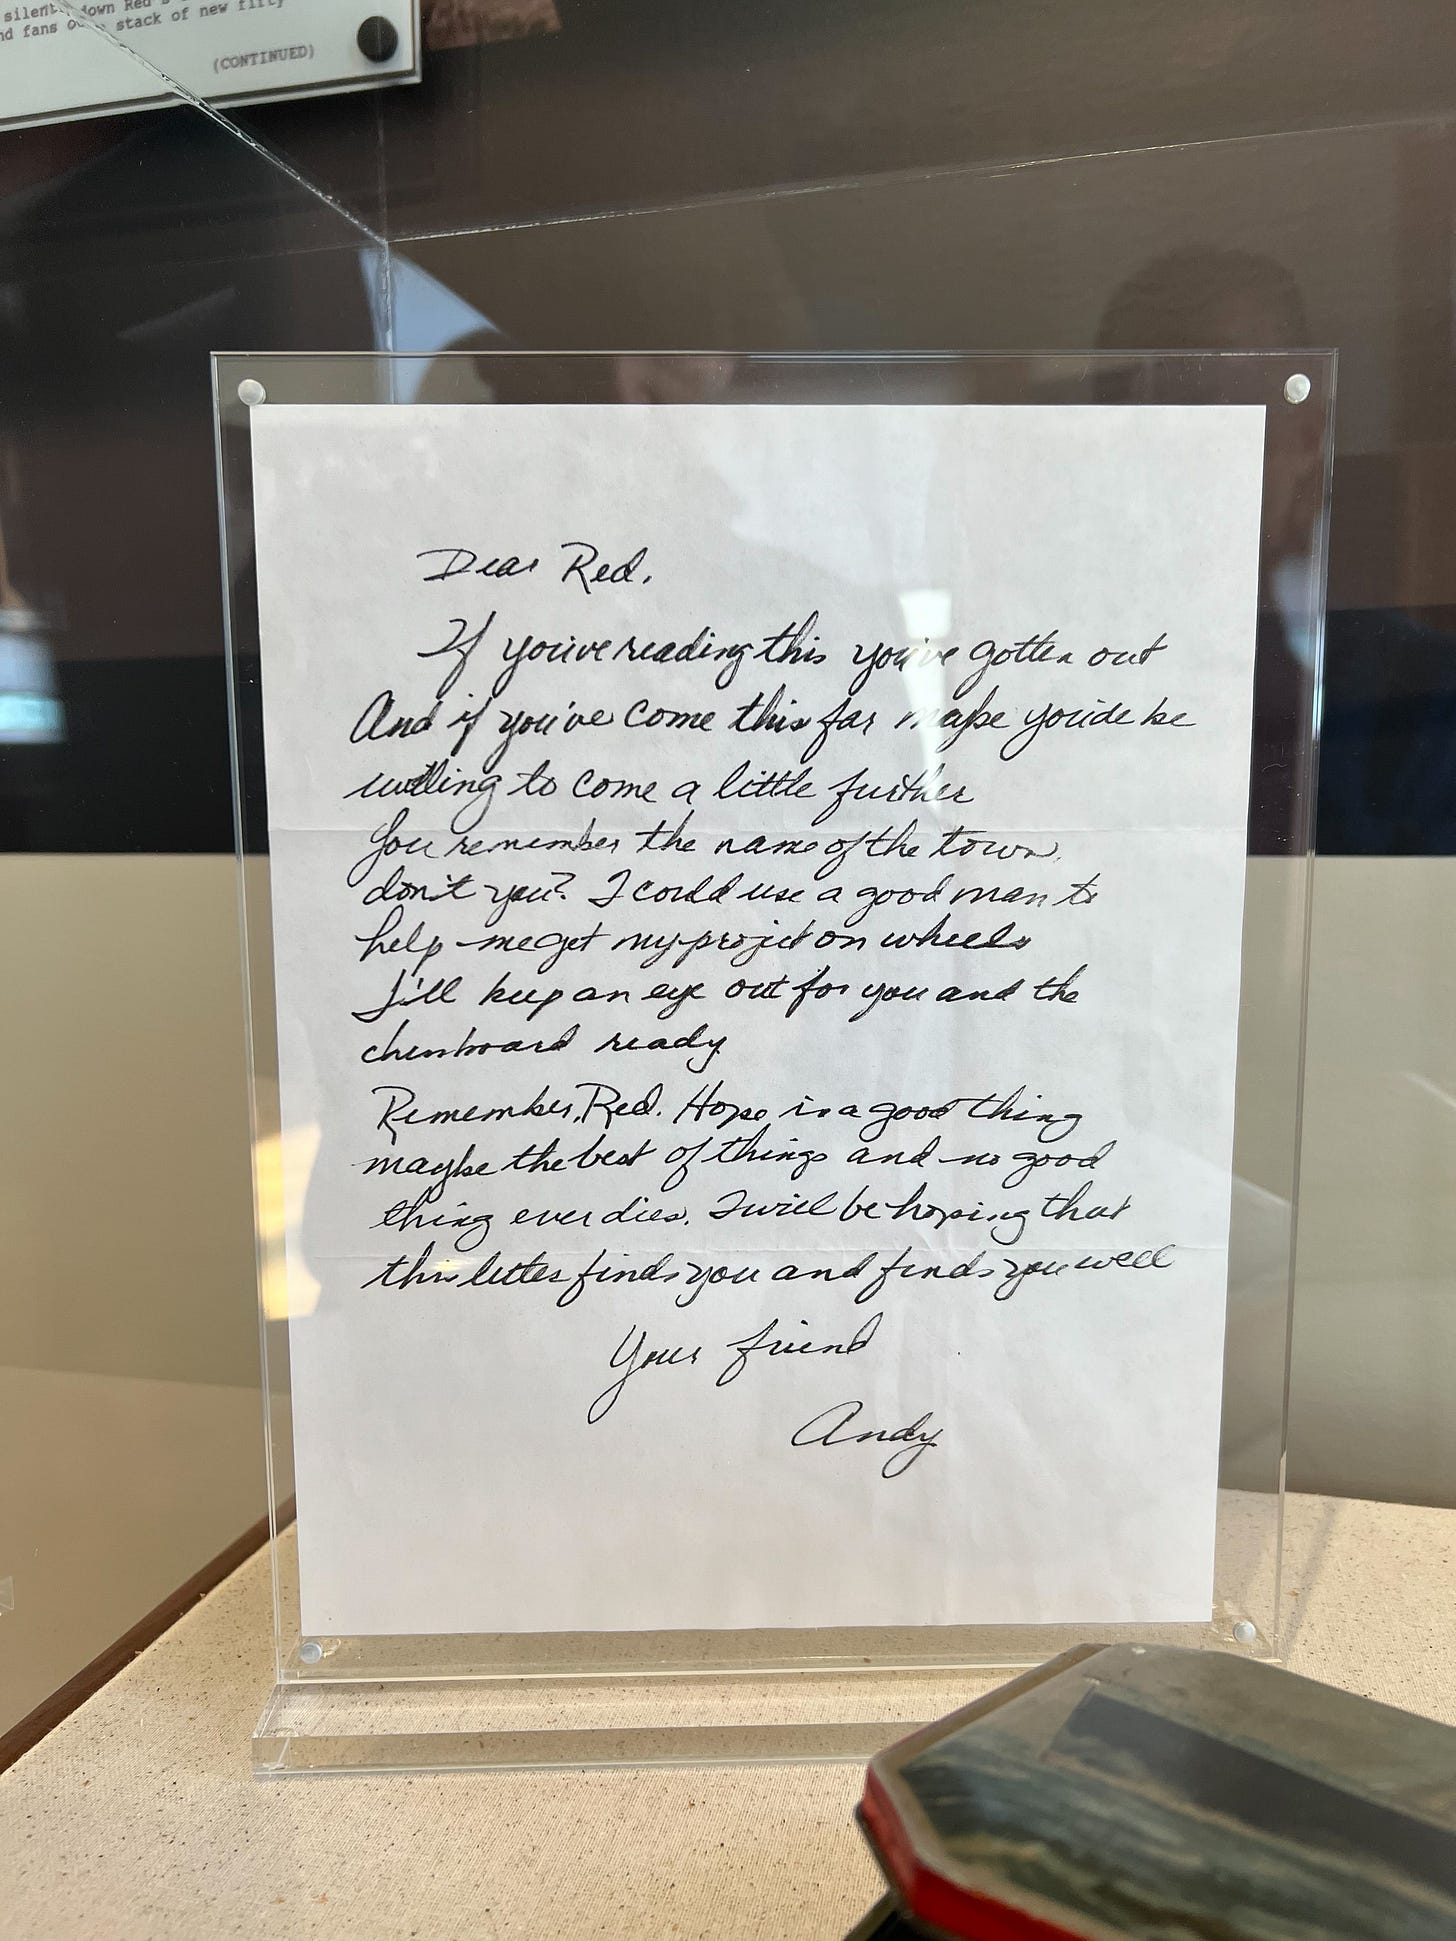 silently down Red's
nd fans out stack of new fifty
(CONTINUED)
Dear Red.
If you've reading this you've gotten out
And if you've come this far maybe you'de be
willing to come a little further
You remember the name of the town,
don't you? I could use a good man to
help me get my project on wheels
I'll keep an eye out for you and the
chessboard ready
Remember, Red. Hope is a good thing
maybe the best of things and no good
thing ever dies. I will be hoping that
this letter finds you and finds you well
Your friend
Andy